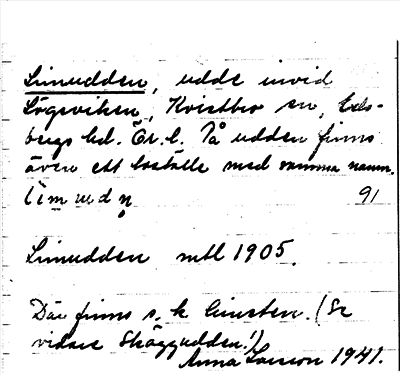 Limudden, udde invid
Lögsviken, Kvistbro sn, Eds-
bergs hd. Ör. l. På udden finns
även ett boställe med samma namn.
91
Limudden mtl 1905.
Där finns s. k. limsten. (Se
vidare Skäggudden!)
Anna Larsson 1941.